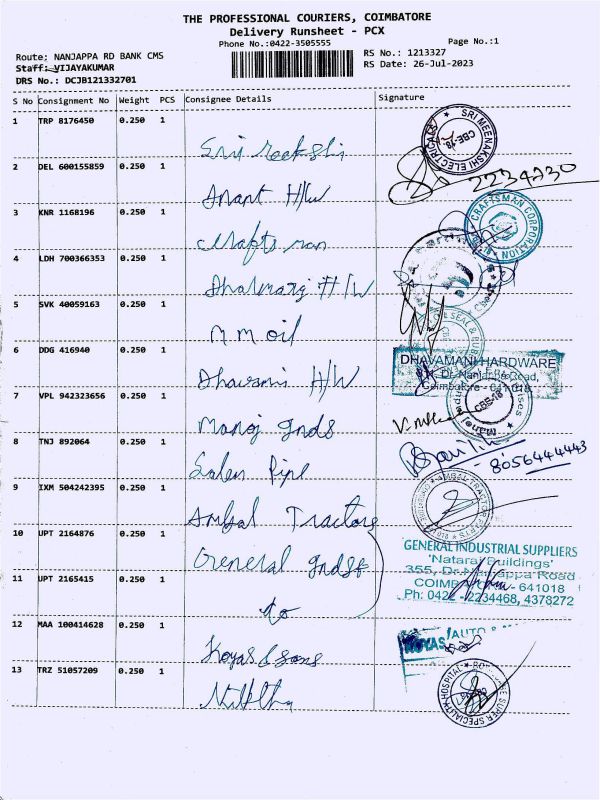 THE PROFESSIONAL COURIERS, COIMBATORE
Delivery Runsheet - PCX
Phone No.:0422-3505555
Page No.:1
Route: NANJAPPA RD BANK CMS
RS No.: 1213327
Staff: VIJAYAKUMAR
RS Date: 26-Jul-2023
DRS No.: DCJB121332701
S No Consignment No Weight PCS Consignee Details Signature
1 TRP 8176450 0.250 1
SRI MEENAKSHI ELECTRICALS CBE-18
2 DEL 600155859 0.250 1
2234230
Anant H/W
3 KNR 1168196 0.250 1
CRAFTSMAN CORPORATION
4 LDH 700366353 0.250 1
H/W
5 SVK 40059163 0.250 1
M M oil
6 DDG 416940 0.250 1
DHAVAMANI HARDWARE
Coimbatore - 641018
H/W
7 VPL 942323656 0.250 1
CBE-18
Manoj
8 TNJ 892064 0.250 1
8056444443
Salem Pipe
9 IXM 504242395 0.250 1
AMBAL TRACTOR PARTS
Ambal Tractors
10 UPT 2164876 0.250 1
GENERAL INDUSTRIAL SUPPLIERS
'Nataraj Buildings'
General
11 UPT 2165415 0.250 1
365, Dr. Nanjappa Road
COIMBATORE - 641018
Ph: 0422 - 2234468, 4378272
to
12 MAA 100414628 0.250 1
KOYAS AUTO &
Koyas & Sons
13 TRZ 51057209 0.250 1
SUPER SPECIALITY HOSPITAL